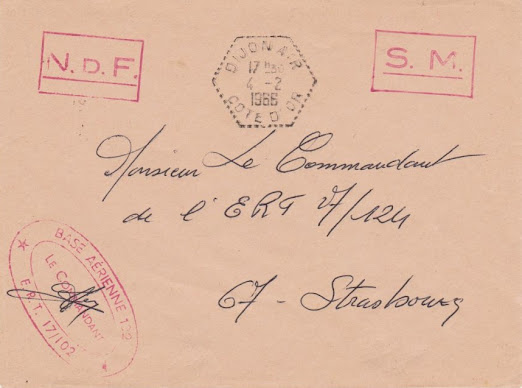 N.D.F.
DIJON AIR
17 H
4 - 2
1966
COTE D'OR
S. M.
Monsieur Le Commandant
de l'ERT 17/124
67 - Strasbourg
BASE AÉRIENNE 102
LE COMMANDANT
E.R.T. 17/102